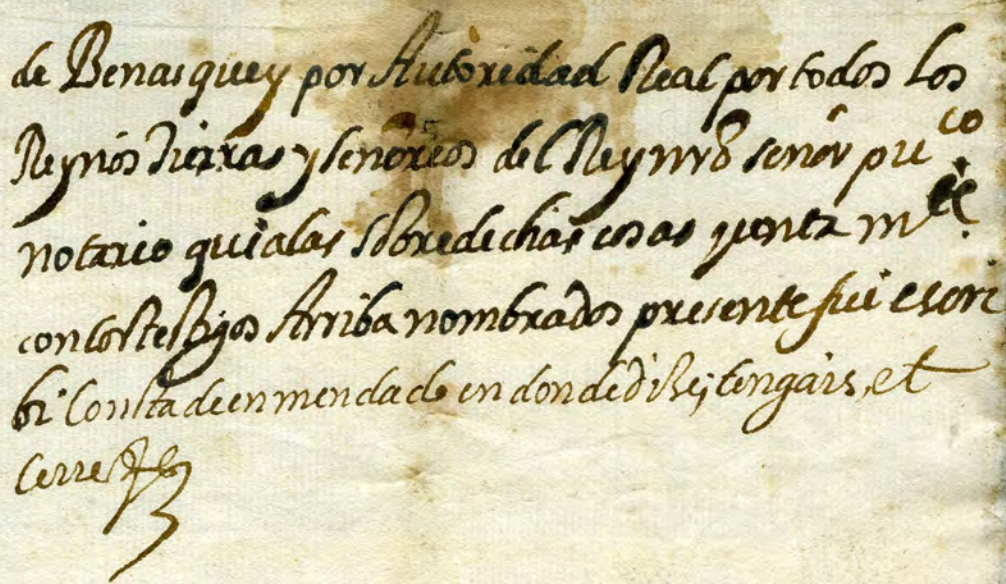 de Benasque y por Autoridad Real por todos los
Reynos Tierras y señorios del Rey nrõ señor puco
notario qui a las sobredichas cosas junta mte
con los testigos Arriba nombrados presente fui escri
bi Consta de enmendado en donde di se, tengais, et
Cerre